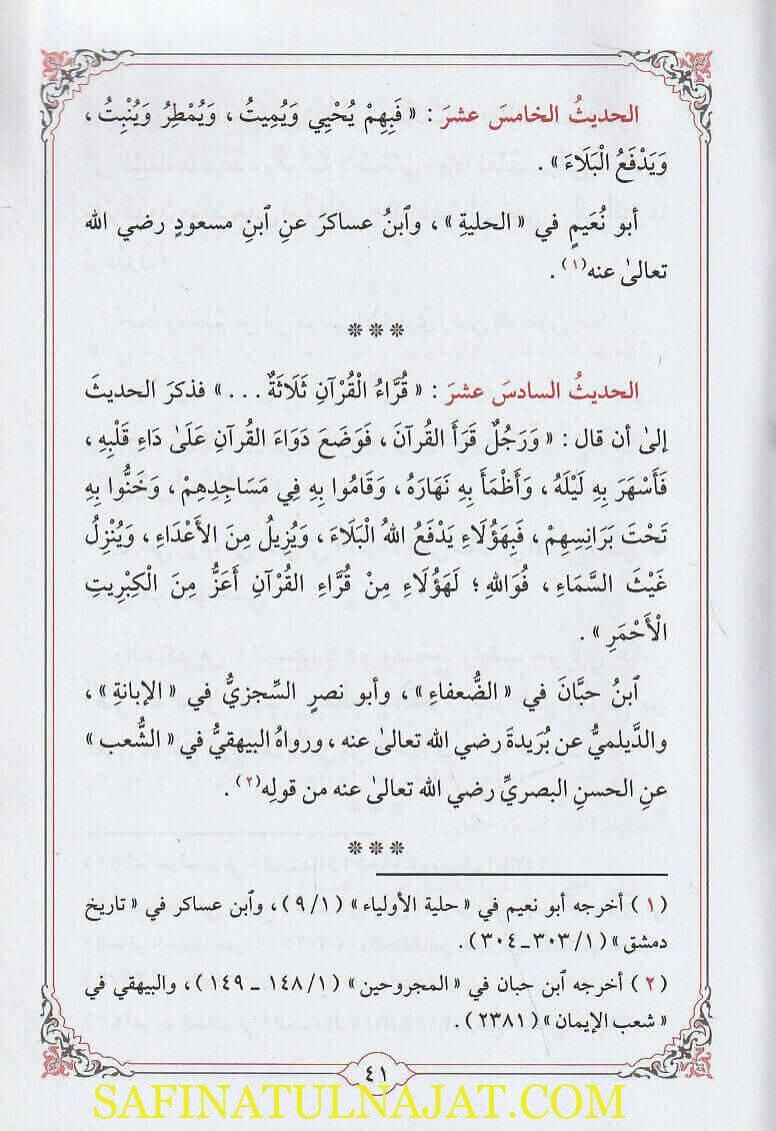 الحديثُ الخامسَ عشرَ : « فَبِهِمْ يُحْيِي وَيُمِيتُ ، وَيُمْطِرُ وَيُنْبِتُ ،
وَيَدْفَعُ الْبَلَاءَ » .
أبو نُعَيمٍ في « الحليةِ » ، وٱبنُ عساكرَ عنِ ٱبنِ مسعودٍ رضي الله
تعالىٰ عنه(١) .
* * *
الحديثُ السادسَ عشرَ : « قُرَّاءُ الْقُرْآنِ ثَلَاثَةٌ . . . » فذكرَ الحديثَ
إلىٰ أن قال : « وَرَجُلٌ قَرَأَ القُرْآنَ ، فَوَضَعَ دَوَاءَ القُرْآنِ عَلَىٰ دَاءِ قَلْبِهِ ،
فَأَسْهَرَ بِهِ لَيْلَهُ ، وَأَظْمَأَ بِهِ نَهَارَهُ ، وَقَامُوا بِهِ فِي مَسَاجِدِهِمْ ، وَخَنُّوا بِهِ
تَحْتَ بَرَانِسِهِمْ ، فَبِهَؤُلَاءِ يَدْفَعُ اللهُ الْبَلَاءَ ، وَيُزِيلُ مِنَ الأَعْدَاءِ ، وَيُنْزِلُ
غَيْثَ السَّمَاءِ ، فُوَاللهِ ؛ لَهَؤُلَاءِ مِنْ قُرَّاءِ القُرْآنِ أَعَزُّ مِنَ الْكِبْرِيتِ
الْأَحْمَرِ » .
ٱبنُ حبَّانَ في « الضُّعفاءِ » ، وأبو نصرٍ السِّجزيُّ في « الإبانةِ » ،
والدَّيلميُّ عن بُرَيدةَ رضي الله تعالىٰ عنه ، ورواهُ البيهقيُّ في « الشُّعب »
عنِ الحسنِ البصريِّ رضي الله تعالىٰ عنه من قولِه(٢) .
* * *
( ١ ) أخرجه أبو نعيم في « حلية الأولياء » ( ١/ ٩ ) ، وٱبن عساكر في « تاريخ
دمشق » ( ١/ ٣٠٣ـ ٣٠٤ ).
( ٢ ) أخرجه ٱبن حبان في « المجروحين » ( ١/ ١٤٨ ـ ١٤٩ ) ، والبيهقي في
« شعب الإيمان » ( ٢٣٨١ ) .
٤١
SAFINATULNAJAT.COM